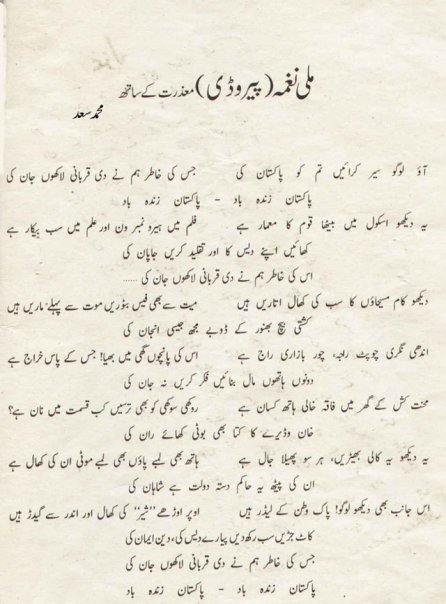 ملی نغمہ (پیروڈی) معذرت کے ساتھ
محمد سعد
آؤ لوگو سیر کرائیں تم کو پاکستان کی جس کی خاطر ہم نے دی قربانی لاکھوں جان کی
پاکستان زندہ باد - پاکستان زندہ باد
یہ دیکھو اسکول میں بیٹھا قوم کا معمار ہے فلم میں ہیرو نمبر ون اور علم میں سب بیکار ہے
کھائیں اپنے دیس کا اور تقلید کریں جاپان کی
اس کی خاطر ہم نے دی قربانی لاکھوں جان کی ......
دیکھو کام مسیحاؤں کا سب کی کھال اتاریں ہیں میت سے بھی فیس بٹوریں موت سے پہلے ماریں ہیں
کشتی بیچ بھنور کے ڈوبے مجھ جیسی انجان کی
اندھی نگری چوپٹ راجہ، چور بازاری راج ہے اس کی پانچوں گھی میں بھیا! جس کے پاس خراج ہے
دونوں ہاتھوں مال بنائیں فکر کریں نہ جان کی
محنت کش کے گھر میں فاقہ خالی ہاتھ کسان ہے روکھی سوکھی کو بھی ترسیں کب قسمت میں نان ہے؟
خان وڈیرے کا کتا بھی بوٹی کھائے ران کی
یہ دیکھو یہ کالی بھیڑیں، ہر سو پھیلا جال ہے ہاتھ بھی لمبے پاؤں بھی لمبے موٹی ان کی کھال ہے
ان کی پیٹھ پہ حاکم دستہ دولت ہے شاہان کی
اس جانب بھی دیکھو لوگو! پاک وطن کے لیڈر ہیں اوپر اوڑھے ’’شیر‘‘ کی کھال اور اندر سے گیدڑ ہیں
کاٹ جڑیں سب رکھ دیں پیارے دیس کی، دین ایمان کی
جس کی خاطر ہم نے دی قربانی لاکھوں جان کی
پاکستان زندہ باد - پاکستان زندہ باد